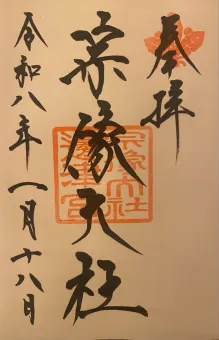 奉拝
宗像大社
令和八年一月十八日
宗像大社
辺津宮